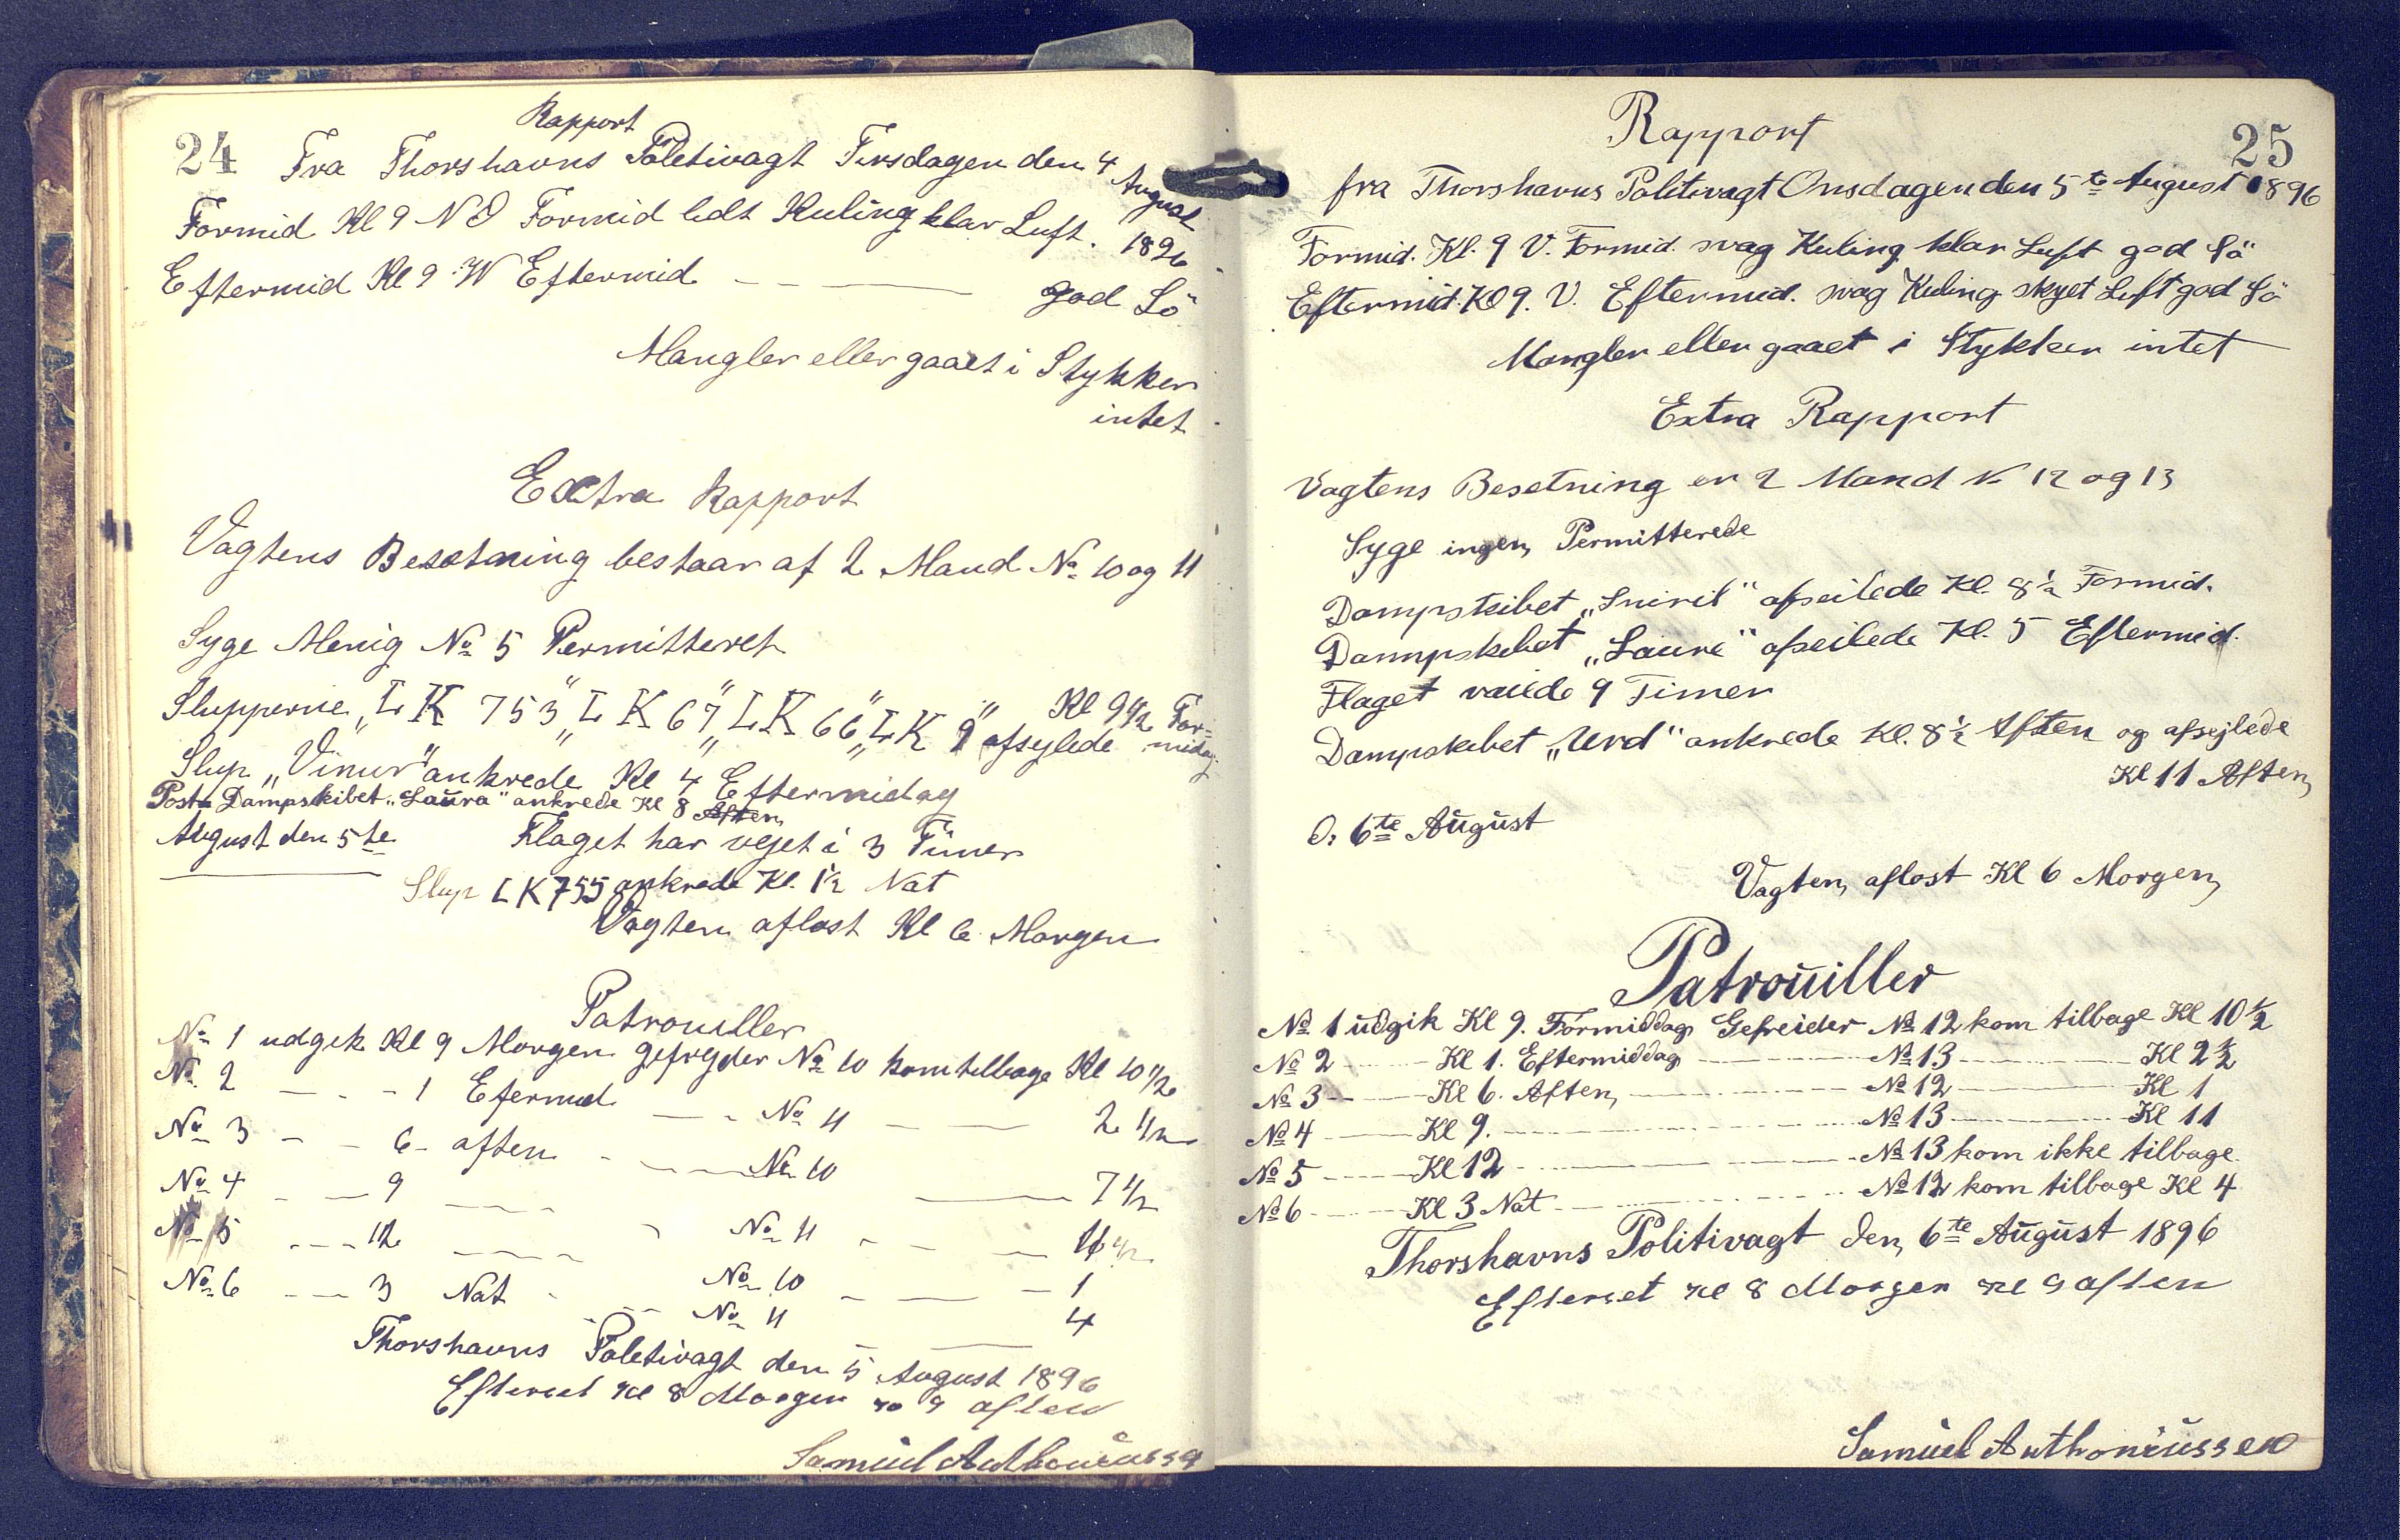 24
Rapport
Fra Thorshavns Poletivagt Tirsdagen den 4 August 1896
Formid Kl 9 N O Formid lidt Kuling klar Luft.
Eftermid Kl 9 W Eftermid — — — god Sö
Mangler eller gaaet i Stykker
intet
Extra Rapport
Vagtens Besetning bestaar af 2 Mand No 10 og 11
Syge Menig No 5 Permitteret
Slupperne „LK 753" „LK 67" „LK 66" „LK 9" afsylede Kl 9 1/2 Formidag
Slup „Vimur" ankrede Kl 4 Eftermidag
Post Dampskibet „Laura" ankrede Kl 8 Aften
August den 5te Flaget har vejet i 3 Timer
Slup LK 755 ankrede Kl. 1½ Nat
Vagten aflost Kl 6 Morgen
Patrouiller
No 1 udgik Kl 9 Morgen gefryder No 10 kom tilbage Kl 10 1/2
No 2 — - - 1 Efermid — - No 11 — — 2 1/2
No 3 — - 6 - aften - — No 10 — 7 1/2
No 4 - — 9 — — No 11 - - — 11 1/2
No 5 - — 12 — — No 10 - — - 1
No 6 - — 3 Nat - - No 11 — 4
Thorshavns Poletivagt den 5 August 1896
Efterset Kl 8 Morgen 9 aften
Samuel Anthoniussen
25
Rapport
fra Thorshavns Politivagt Onsdagen den 5te August 1896
Formid. Kl. 9 V. Formid. svag Kuling klar Luft god Sö
Eftermid. Kl 9. V. Eftermid. svag Kuling skyet Luft god Sö
Mangler eller gaaet i Stykker intet
Extra Rapport
Vagtens Besetning er 2 Mand No 12 og 13
Syge ingen, Permitterede
Dampskibet „Smiril" afseilede Kl. 8½ Formid.
Dampskibet „Laura" afseilede Kl. 5 Eftermid.
Flaget vaiede 9 Timer
Dampskibet „Urd" ankrede Kl. 8½ Aften og afsejlede
Kl 11 Aften,
D. 6te August
Vagten, aflost Kl 6 Morgen,
Patrouiller
No 1 udgik Kl 9. Formiddag Gefreider No 12 kom tilbage Kl 10½
No 2 — Kl 1. Eftermiddag — No 13 — Kl 2½
No 3 — Kl 6. Aften, — No 12 — Kl 1
No 4 — Kl 9. — No 13 — Kl 11
No 5 — Kl 12 — No 13 kom ikke tilbage
No 6 — Kl 3 Nat — No 12 kom tilbage Kl 4
Thorshavns Politivagt den, 6te August 1896
Efterset Kl 8 Morgen Kl 9 aften
Samuel Anthoniussen